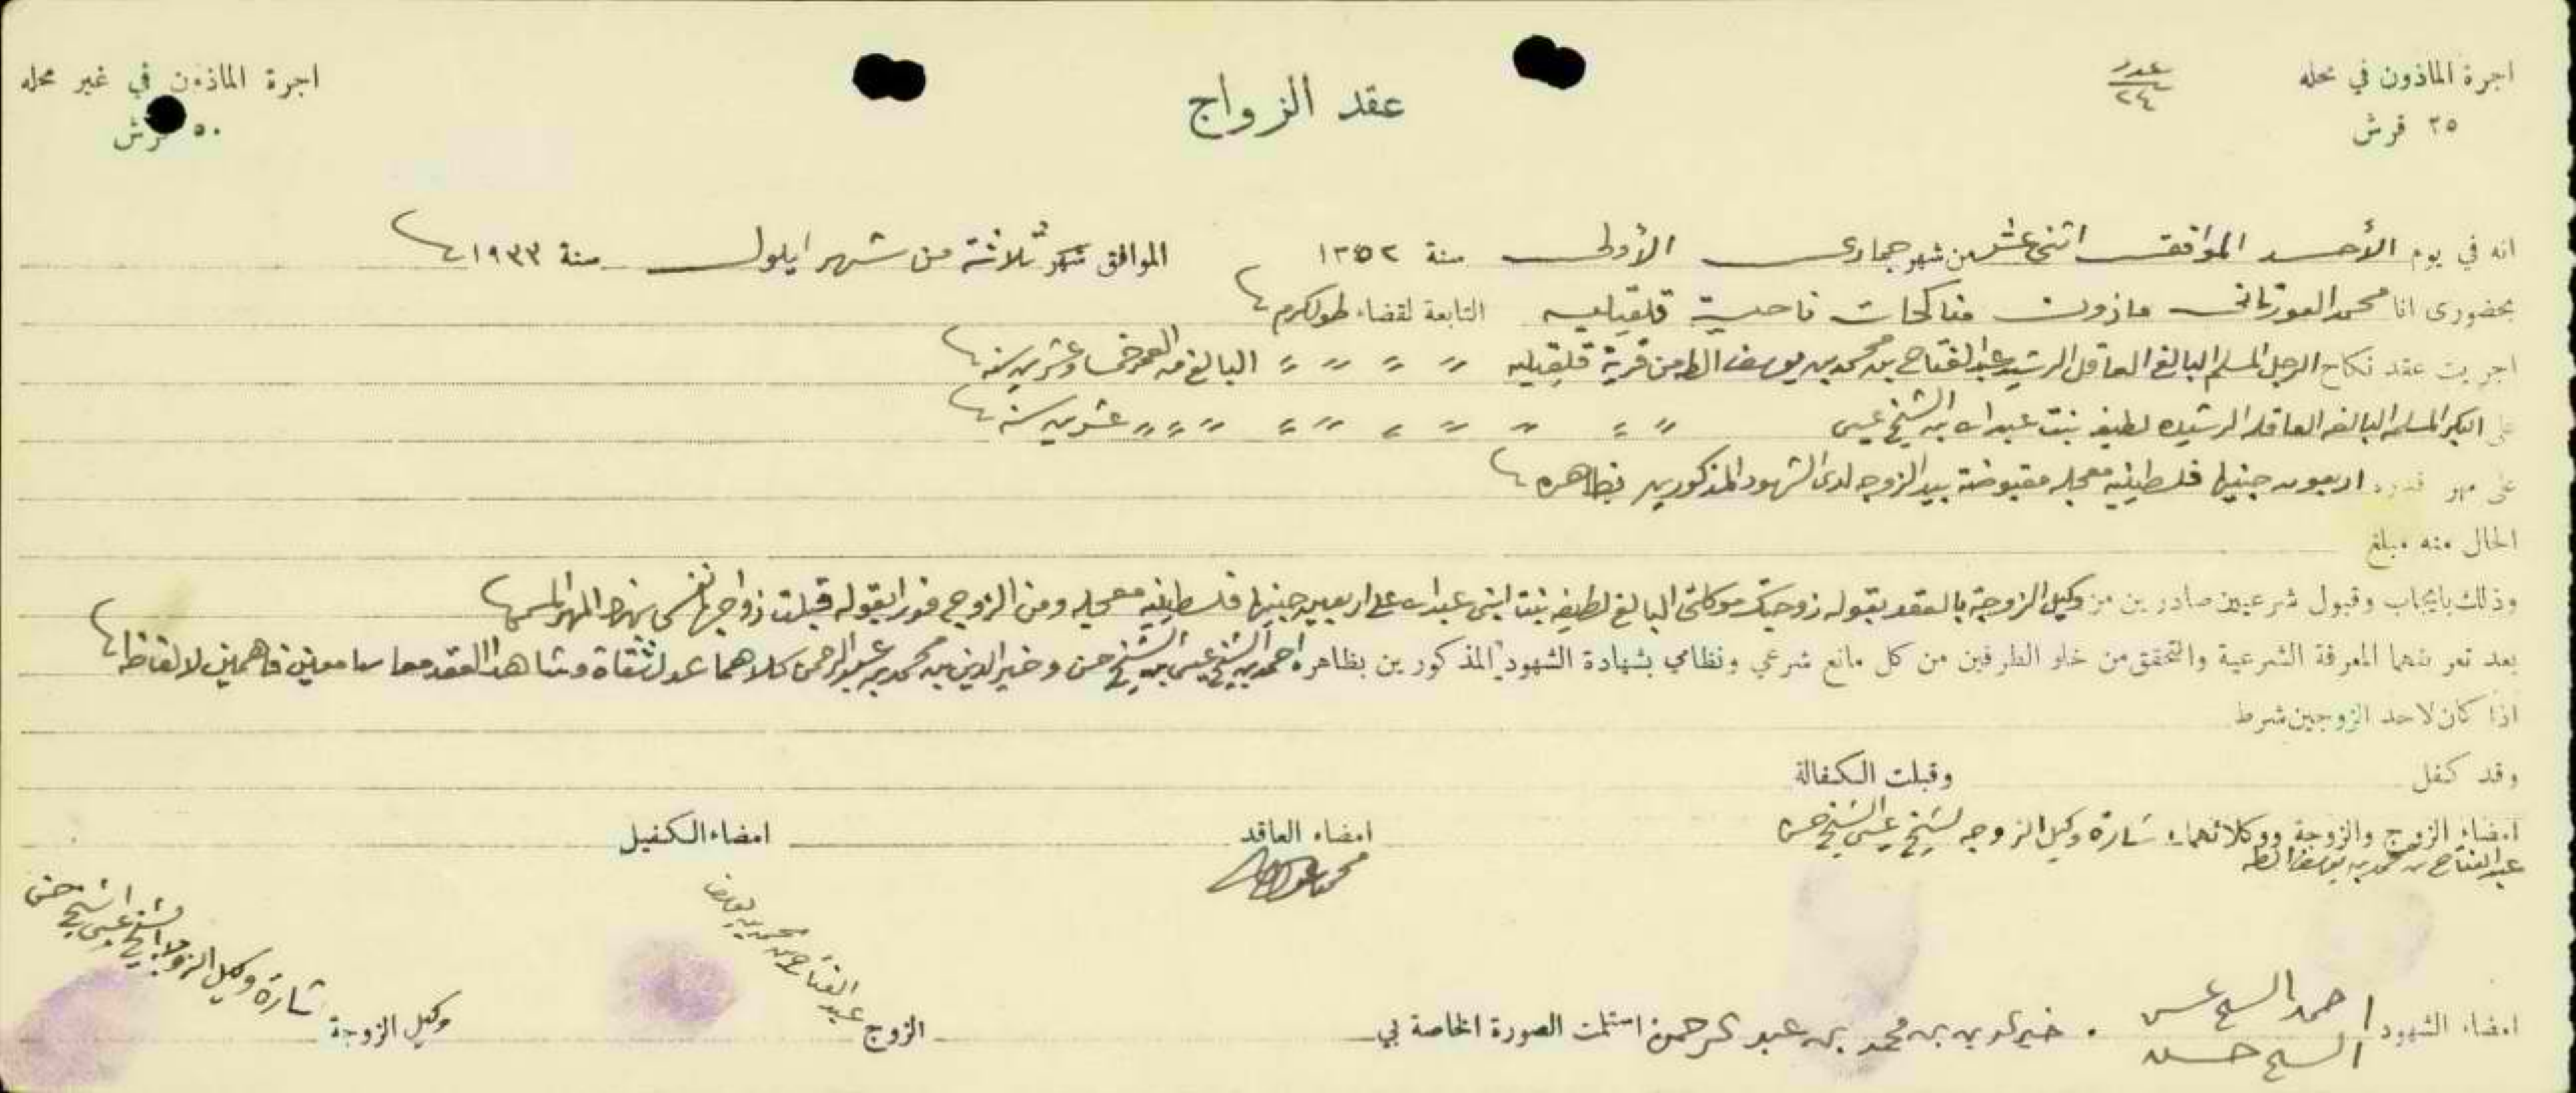 اجرة المأذون في محله
٢٥ قرش
عدد
٢٤
عقد الزواج
اجرة المأذون في غير محله
٥٠ قرش
انه في يوم الأحد الموافق اثني عشر من شهر جمادى الأولى سنة ١٣٥٢ الموافق ثلاثة من شهر ايلول سنة ١٩٣٣
بحضوري انا محمد مأذون مناكحات ناحية قلقيليه التابعة لقضاء طولكرم
اجريت عقد نكاح الرجل المسلم البالغ العاقل الرشيد عبد الفتاح بن محمد بن يوسف الطه من قرية قلقيليه " " " " " البالغ من العمر خمسا وعشرين سنه
على البكر المسلمه البالغه العاقله الرشيده لطيفه بنت عبدالله ابن الشيخ عيسى " " " " " " " " " " عشرين سنه
على مهر قدره اربعون جنيها فلسطينيه معجله مقبوضة بيد الزوجه لدى الشهود المذكورين بظاهره
الحال منه مبلغ
وذلك بايجاب وقبول شرعيين صادرين من وكيل الزوجة بالعقد بقوله زوجتك موكلتي البالغ لطيفه بنت ابني عبدالله على اربعين جنيها فلسطينيه معجله ومن الزوج فورا بقوله قبلت زواجها لنفسي بهذا المهر المسمى
بعد تعريفهما المعرفة الشرعية والتحقق من خلو الطرفين من كل مانع شرعي ونظامي بشهادة الشهود المذكورين بظاهره احمد بن الشيخ عيسى بن الشيخ حسن وخير الدين بن محمد بن عبد الرحمن كلاهما عدول ثقاة وشاهدا العقد معا سامعين فاهمين لالفاظه
اذا كان لاحد الزوجين شرط
وقد كفل وقبلت الكفالة
امضاء الزوج والزوجة ووكلائهما شارة وكيل الزوجه الشيخ عيسى الشيخ حسن امضاء العاقد امضاء الكفيل
عبد الفتاح بن محمد بن يوسف الطه
امضاء الشهود احمد الشيخ عيسى الشيخ حسن . خير الدين بن محمد بن عبد الرحمن استلمت الصورة الخاصة بي الزوج عبد الفتاح بن محمد بن يوسف وكيل الزوجة شارة وكيل الزوجه الشيخ عيسى الشيخ حسن